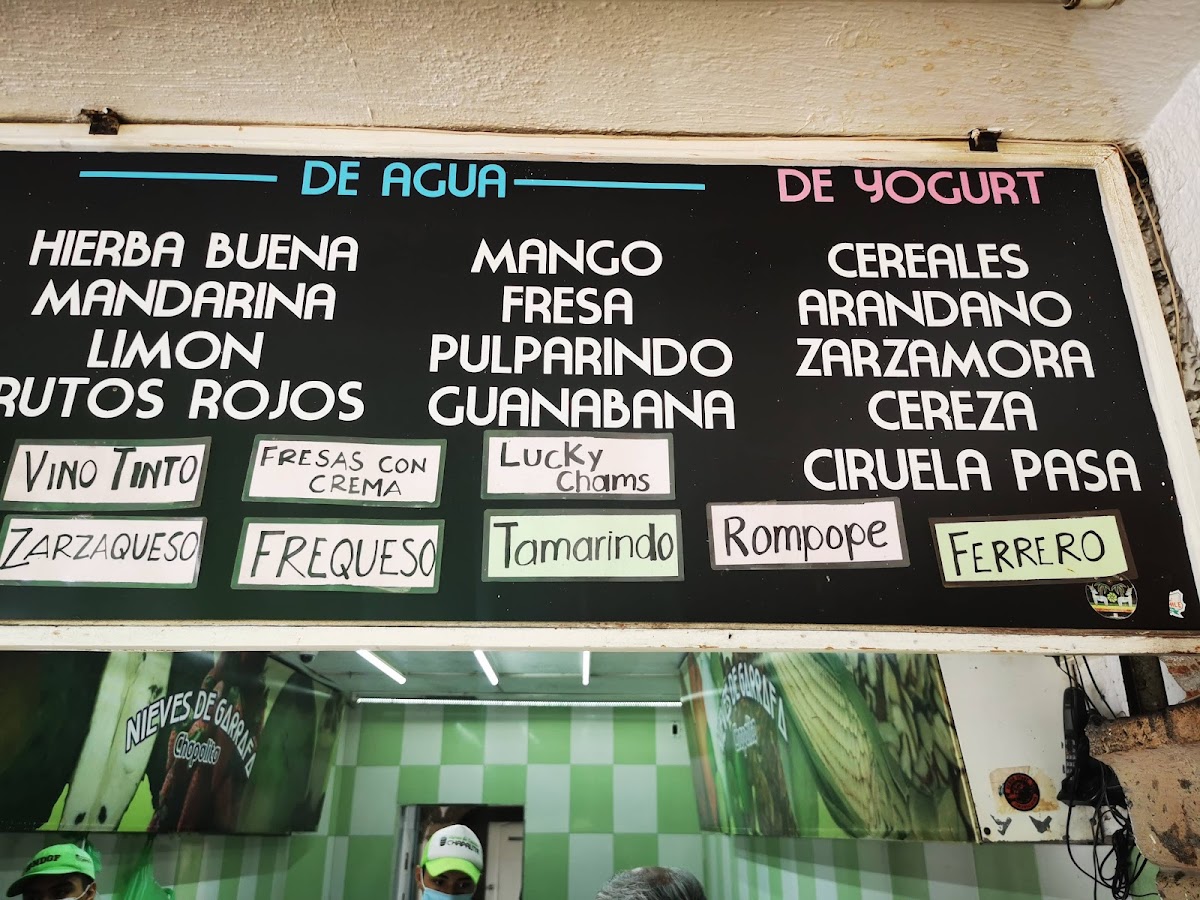 DE AGUA
HIERBA BUENA
MANDARINA
LIMON
RUTOS ROJOS
MANGO
FRESA
PULPARINDO
GUANABANA
DE YOGURT
CEREALES
ARANDANO
ZARZAMORA
CEREZA
CIRUELA PASA
VINO TINTO
FRESAS CON
CREMA
LUCKY
Chams
ZARZAQUESO
FREQUESO
Tamarindo
Rompope
FERRERO
NIEVES DE GARRAFA
Chapalita
DE GARRAFA